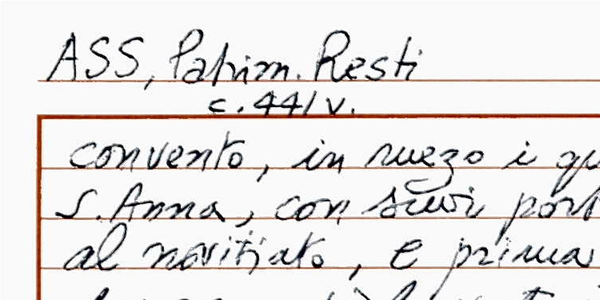 ASS, Patrim. Resti
c. 441 v.
convento, in mezo i qu
S. Anna, con suoi port
al novitiato, e prima